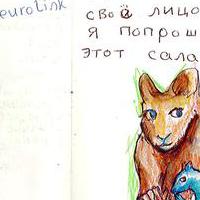 eurolink
своё лицо
я попрош
этот сала